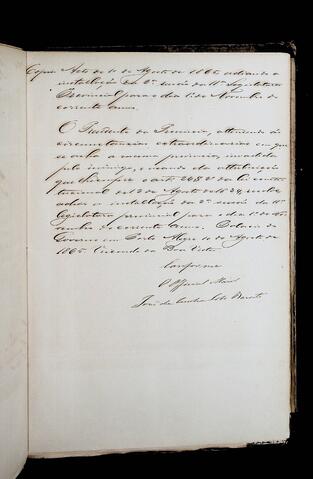 Copia Acto de 10 de Agosto de 1865 adiando a
installação da 2ª sessão da 11ª Legislatura
Provincial para o dia 1º de Novembro do
corrente anno.
O Presidente da Provincia, attendendo ás
circumstancias extraordinarias em que
se acha a mesma provincia, invadida
pelo inimigo, usando da attribuição
que lhe confere o art. 24 § 2º da Lei consti
tucional de 12 de Agosto de 1834, resolve
adiar a installação da 2ª sessão da 11ª
legislatura provincial para o dia 1º de No
vembro do corrente anno. Palacio do
Governo em Porto Alegre 10 de Agosto de
1865. Visconde da Boa Vista
Conforme
O Official Maior
José da Cunha